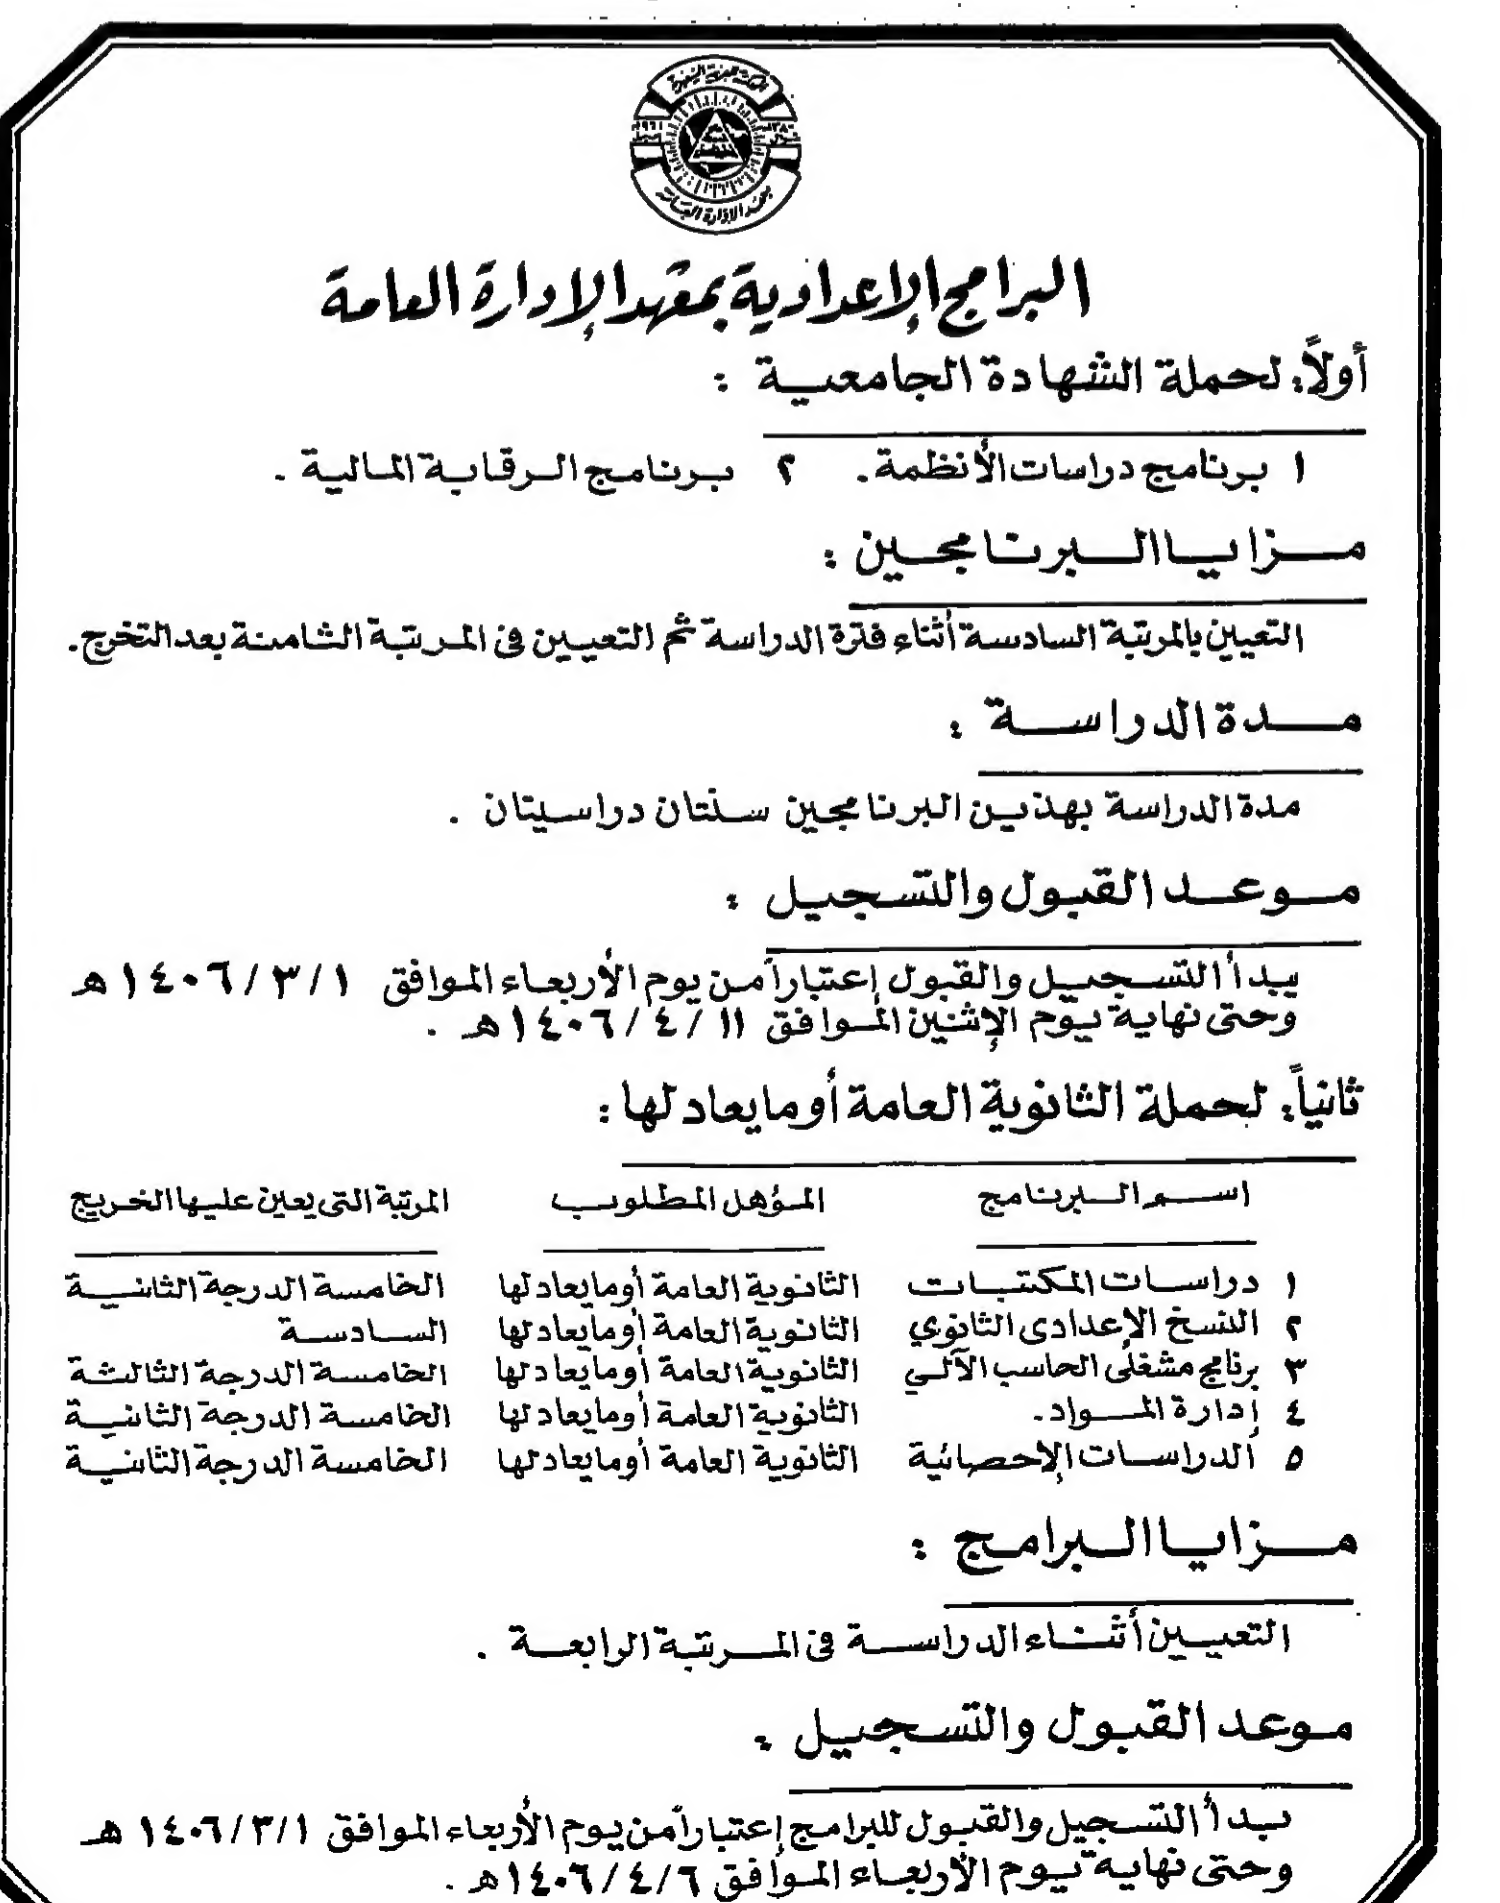 المملكة العربية السعودية
معهد الإدارة العامة
البرامج الإعدادية بمعهد الإدارة العامة
أولاً: لحملة الشهادة الجامعية :
١ برنامج دراسات الأنظمة. ٢ برنامج الرقابة المالية .
مزايا البرنامجين :
التعيين بالمرتبة السادسة أثناء فترة الدراسة ثم التعيين فى المرتبة الثامنة بعد التخرج.
مدة الدراسة :
مدة الدراسة بهذين البرنامجين سنتان دراسيتان .
موعد القبول والتسجيل :
يبدأ التسجيل والقبول إعتباراً من يوم الأربعاء الموافق ١ / ٣ / ١٤٠٦ هـ
وحتى نهاية يوم الإثنين الموافق ١١ / ٤ / ١٤٠٦هـ .
ثانياً: لحملة الثانوية العامة أو مايعادلها :
اسم البرنامج المؤهل المطلوب المرتبة التى يعين عليها الخريج
١ دراسات المكتبات الثانوية العامة أومايعادلها الخامسة الدرجة الثانية
٢ النسخ الإعدادى الثانوي الثانوية العامة أومايعادلها السادسة
٣ برنامج مشغلى الحاسب الآلي الثانوية العامة أومايعادلها الخامسة الدرجة الثالثة
٤ إدارة المواد. الثانوية العامة أومايعادلها الخامسة الدرجة الثانية
٥ الدراسات الإحصائية الثانوية العامة أومايعادلها الخامسة الدرجة الثانية
مزايا البرامج :
التعيين أثناء الدراسة فى المرتبة الرابعة .
موعد القبول والتسجيل :
يبدأ التسجيل والقبول للبرامج إعتباراً من يوم الأربعاء الموافق ١ / ٣ / ١٤٠٦ هـ
وحتى نهاية يوم الأربعاء الموافق ٦ / ٤ / ١٤٠٦هـ .